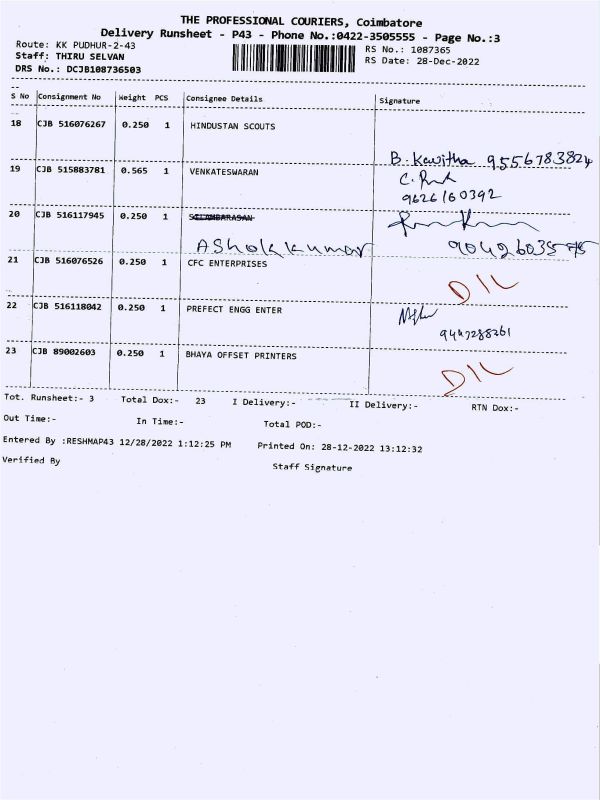 THE PROFESSIONAL COURIERS, Coimbatore
Delivery Runsheet - P43 - Phone No.:0422-3505555 - Page No.:3
Route: KK PUDHUR-2-43 RS No.: 1087365
Staff: THIRU SELVAN RS Date: 28-Dec-2022
DRS No.: DCJB108736503
S No Consignment No Weight PCS Consignee Details Signature
18 CJB 516076267 0.250 1 HINDUSTAN SCOUTS
B. Kavitha 9556783824
19 CJB 515883781 0.565 1 VENKATESWARAN
9626160392
20 CJB 516117945 0.250 1 SELAMBARASAN
AShokkumar 9042603575
21 CJB 516076526 0.250 1 CFC ENTERPRISES D/L
22 CJB 516118042 0.250 1 PREFECT ENGG ENTER
23 CJB 89002603 0.250 1 BHAYA OFFSET PRINTERS D/L
Tot. Runsheet:- 3 Total Dox:- 23 I Delivery:- II Delivery:- RTN Dox:-
Out Time:- In Time:- Total POD:-
Entered By :RESHMAP43 12/28/2022 1:12:25 PM Printed On: 28-12-2022 13:12:32
Verified By Staff Signature